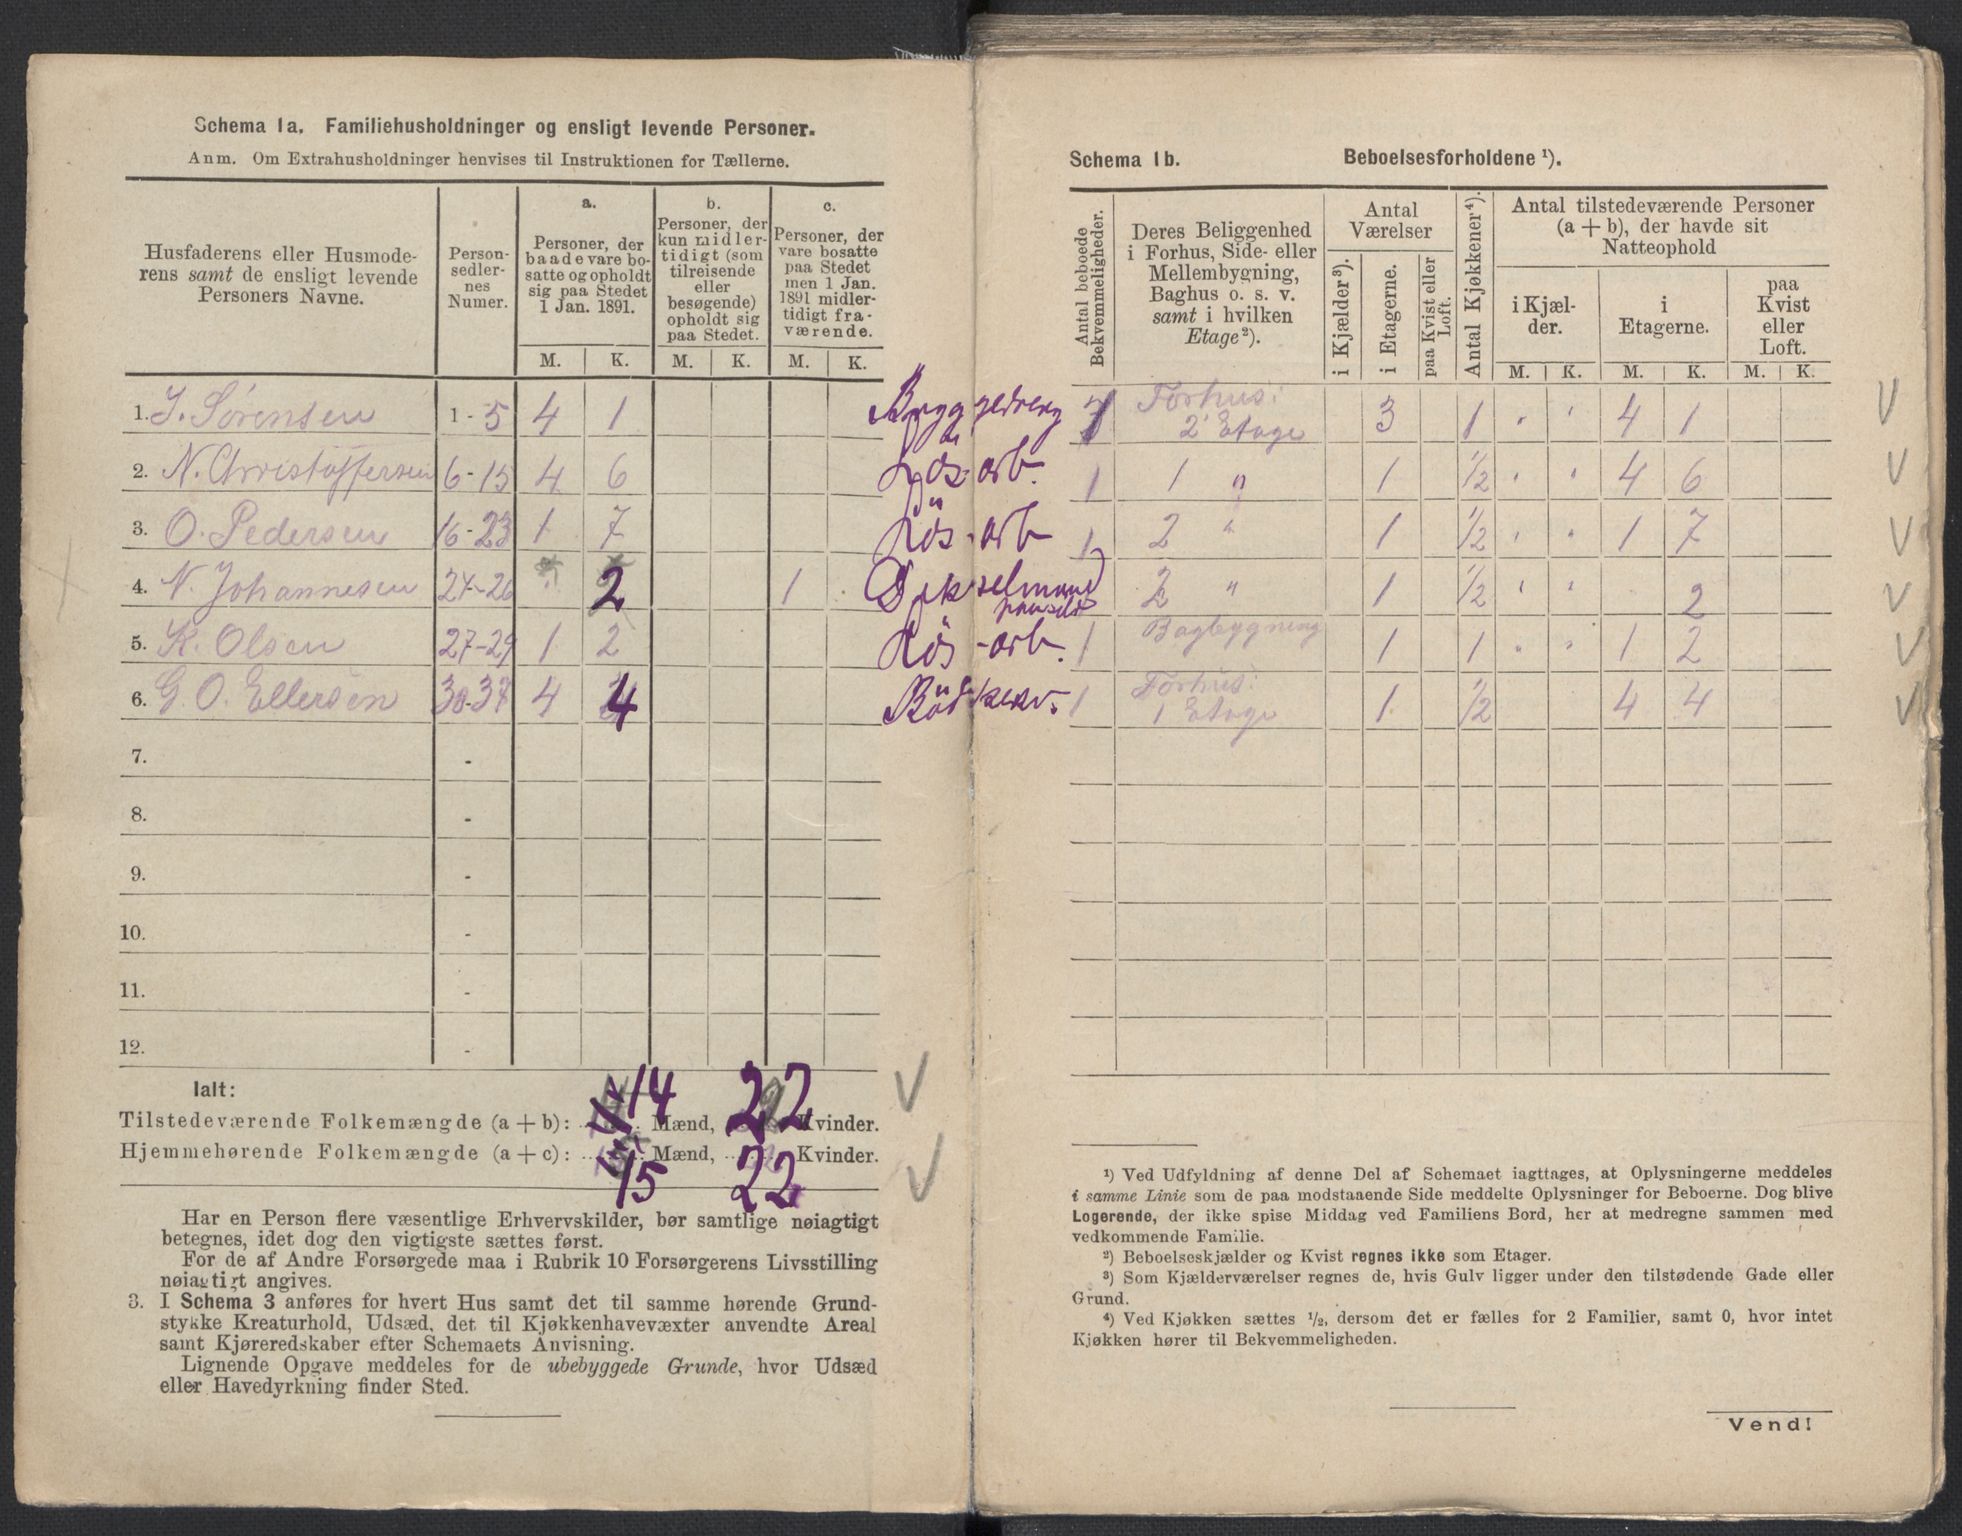 Schema 1a. Familiehusholdninger og ensligt levende Personer.
Anm. Om Extrahusholdninger henvises til Instruktionen for Tællerne.
Husfaderens eller Husmode-
rens samt de ensligt levende
Personers Navne.
Person-
sedler-
nes
Numer.
a.
Personer, der
baade vare bo-
satte og opholdt
sig paa Stedet
1 Jan. 1891.
b.
Personer, der
kun midler-
tidigt (som
tilreisende
eller
besøgende)
opholdt sig
paa Stedet.
c.
Personer, der
vare bosatte
paa Stedet
men 1 Jan.
1891 midler-
tidigt fra-
værende.
M. K. M. K. M. K.
1. J. Sørensen 1-5 4 1
2. N. Christoffersen 6-15 4 6 Løs-arb.
3. O. Pedersen 16-23 1 7 Løs-arb
4. N. Johannesen 24-26 2 1
5. K. Olsen 27-29 1 2 Løs-arb.
6. G. O. Ellersen 30-37 4 4 Bødker
7. -
8. -
9. -
10. -
11. -
12. -
Ialt:
Tilstedeværende Folkemængde (a + b): 14 Mænd, 22 Kvinder.
Hjemmehørende Folkemængde (a + c): 15 Mænd, 22 Kvinder.
Har en Person flere væsentlige Erhvervskilder, bør samtlige nøiagtigt
betegnes, idet dog den vigtigste sættes først.
For de af Andre Forsørgede maa i Rubrik 10 Forsørgerens Livsstilling
nøiagtigt angives.
3. I Schema 3 anføres for hvert Hus samt det til samme hørende Grund-
stykke Kreaturhold, Udsæd, det til Kjøkkenhavevæxter anvendte Areal
samt Kjøreredskaber efter Schemaets Anvisning.
Lignende Opgave meddeles for de ubebyggede Grunde, hvor Udsæd
eller Havedyrkning finder Sted.
Schema 1b. Beboelsesforholdene ¹).
Antal beboede
Bekvemmeligheder.
Deres Beliggenhed
i Forhus, Side- eller
Mellembygning,
Baghus o. s. v.
samt i hvilken
Etage²).
Antal
Værelser
i Kjælder³).
i Etagerne.
paa Kvist eller
Loft.
Antal Kjøkkener⁴).
Antal tilstedeværende Personer
(a + b), der havde sit
Natteophold
i Kjæl-
der.
i
Etagerne.
paa
Kvist
eller
Loft.
M. K. M. K. M. K.
1 Forhus: 2 Etage 3 1 " " 4 1
1 1 " 1 ½ " " 4 6
1 2 " 1 ½ " " 1 7
2 " 1 ½ " " 2
1 Bagbygning 1 1 " " 1 2
1 Forhus: 1 Etage 1 ½ 4 4
¹) Ved Udfyldning af denne Del af Schemaet iagttages, at Oplysningerne meddeles
i samme Linie som de paa modstaaende Side meddelte Oplysninger for Beboerne. Dog blive
Logerende, der ikke spise Middag ved Familiens Bord, her at medregne sammen med
vedkommende Familie.
²) Beboelseskjælder og Kvist regnes ikke som Etager.
³) Som Kjælderværelser regnes de, hvis Gulv ligger under den tilstødende Gade eller
Grund.
⁴) Ved Kjøkken sættes ½, dersom det er fælles for 2 Familier, samt 0, hvor intet
Kjøkken hører til Bekvemmeligheden.
Vend!